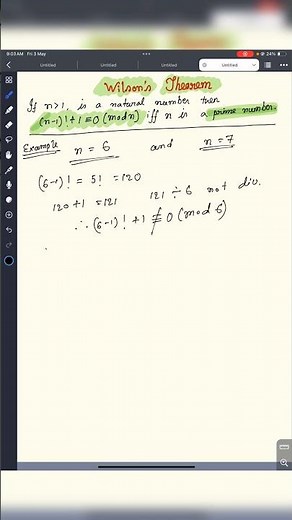 9:03 AM Fri 3 May
24%
Untitled Untitled Untitled Untitled
Wilson's Theorem
If n>1, is a natural number then
(n-1)!+1≡0 (mod n) iff n is a prime number.
Example n = 6 and n = 7
(6-1)! = 5! = 120
120+1 = 121 121 ÷ 6 not div.
∴ (6-1)! +1 ≢ 0 (mod 6)